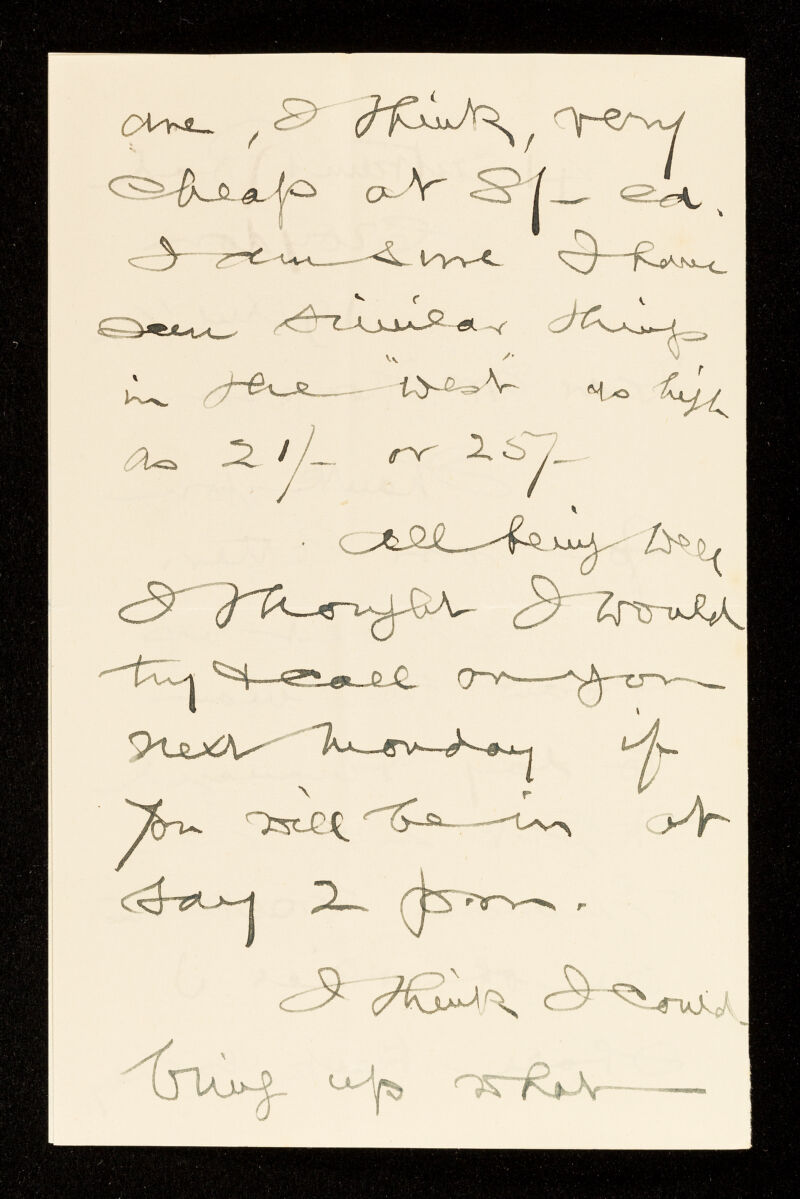 are, I think, very
cheap at 8/- ea.
I am sure I have
seen similar things
in the "West" as high
as 21/- or 25/-
All being well
I thought I would
try & call on you
next Monday if
you will be in at
say 2 p.m.
I think I could
bring up what